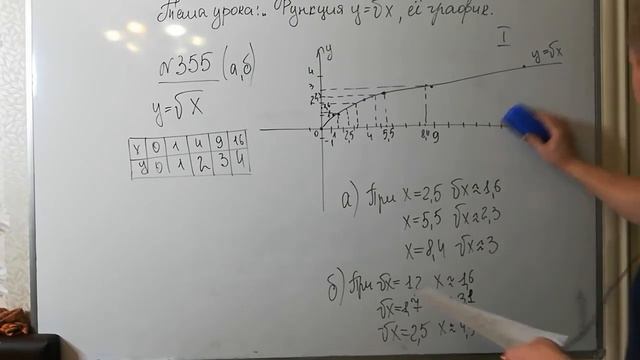 Тема урока:. Функция y=√x, её график.
I
№355 (а,б)
y=√x
x 0 1 4 9 16
y 0 1 2 3 4
y
y=√x
4
3
0 1 2,5 4 5,5 8,4 9
а) При x=2,5 √x≈1,6
x=5,5 √x≈2,3
x=8,4 √x≈3
б) При √x=1,2 x≈1,6
√x=1,7 3,1
√x=2,5 x≈